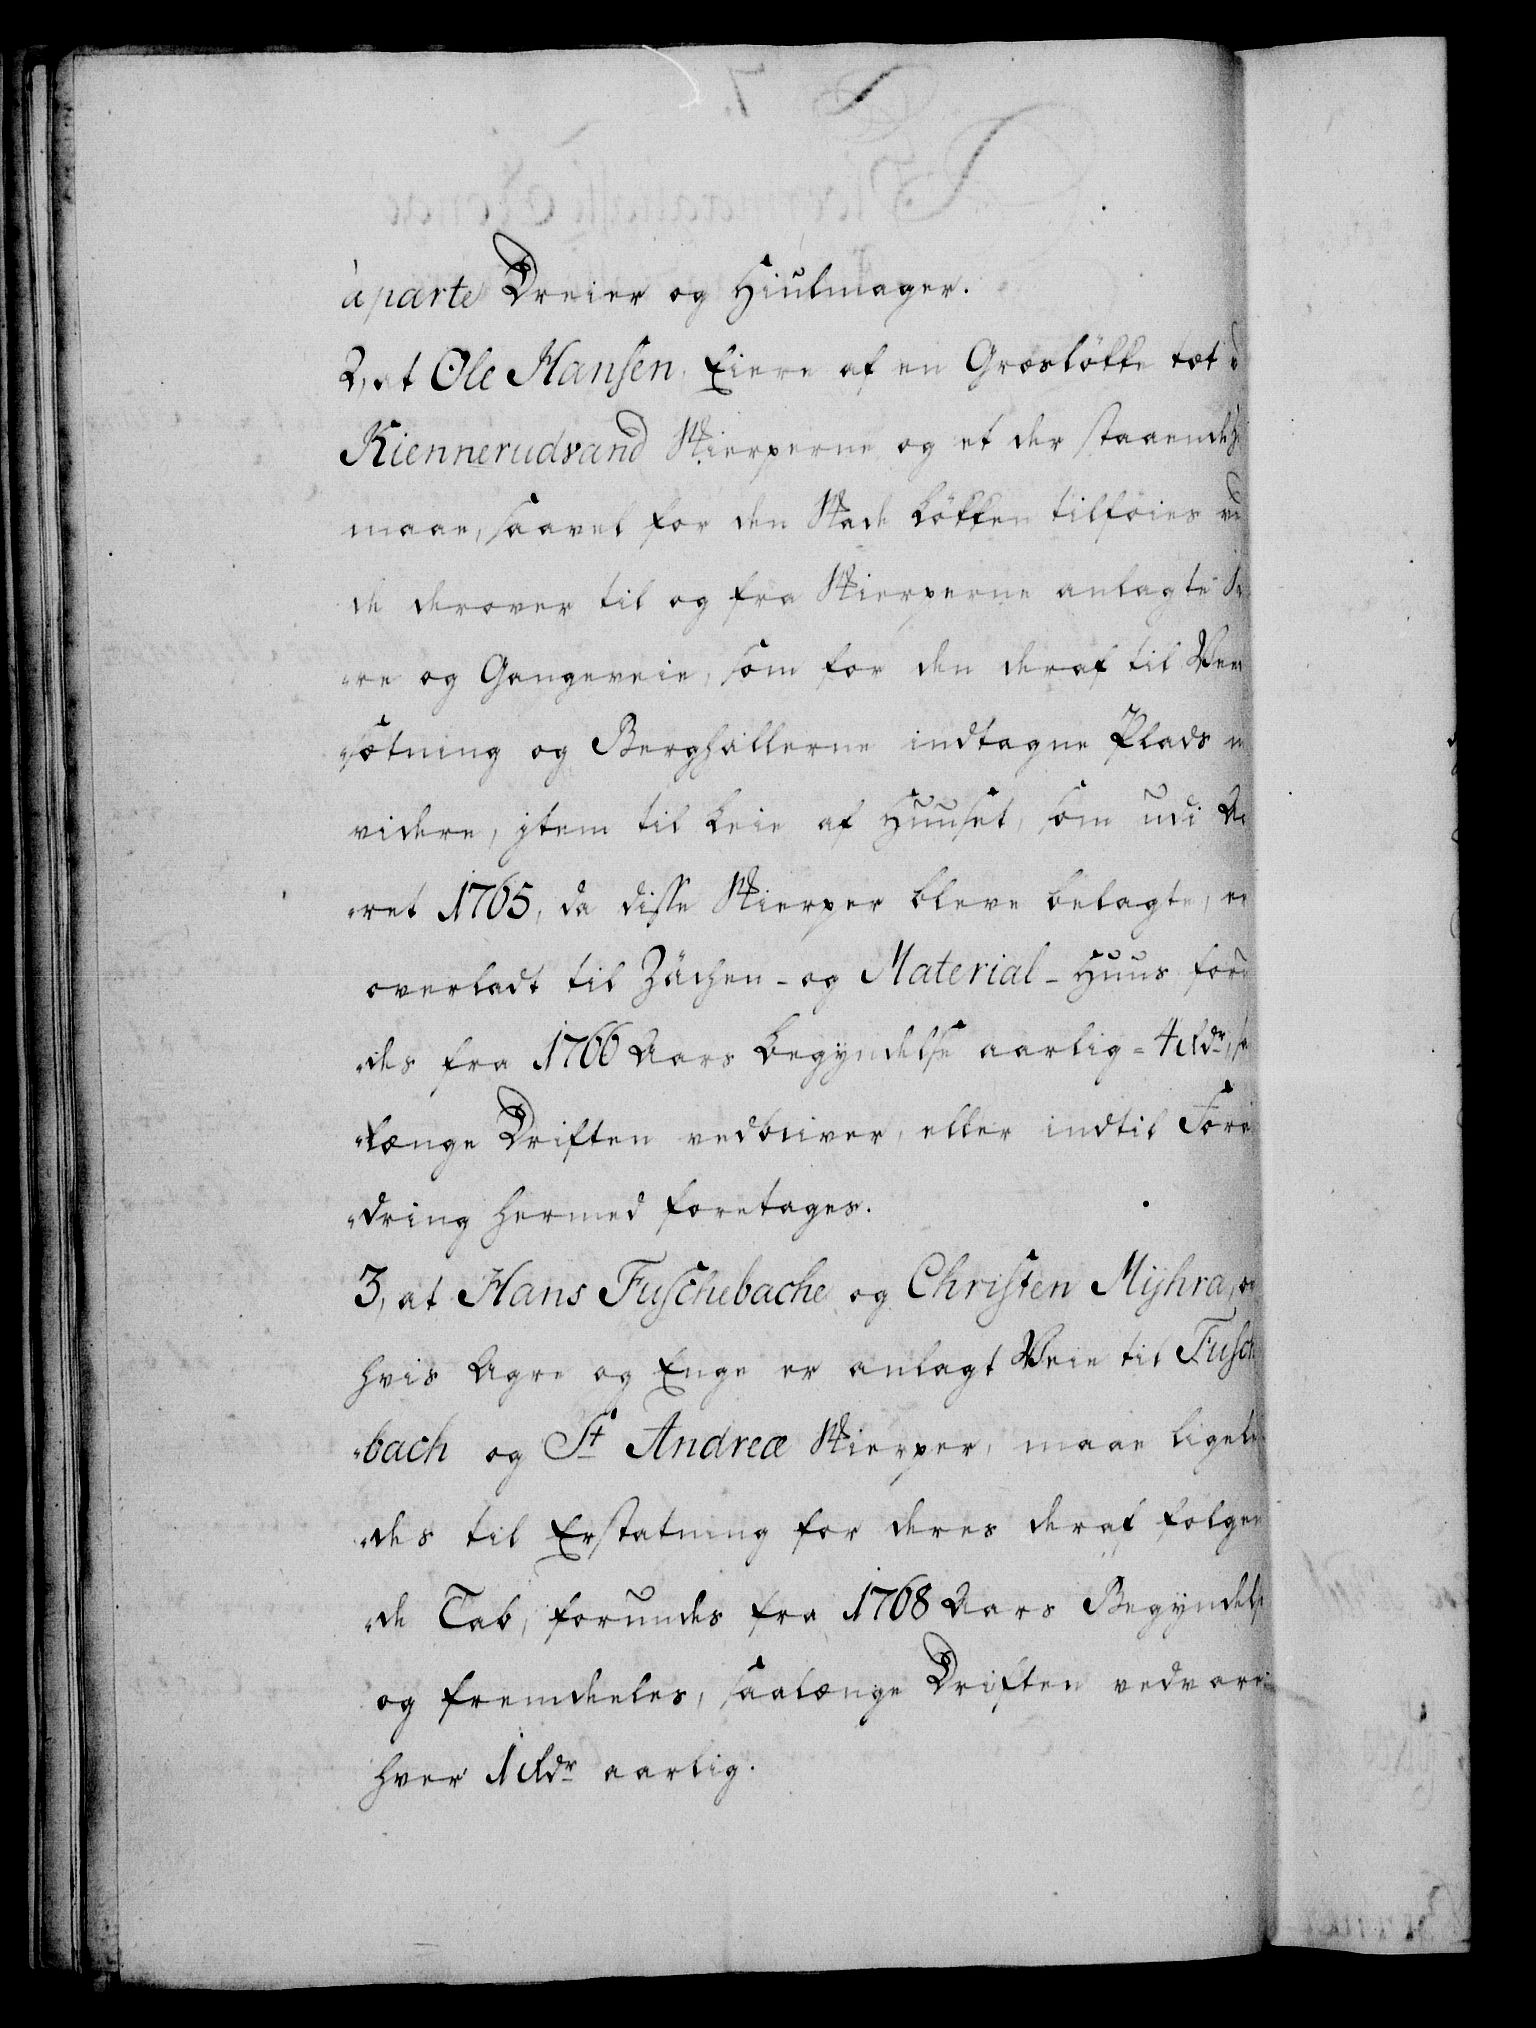 àparte Dreier og Hiulmager.
2, at Ole Hansen, Eiere af en Græsløkke tæt
Kiennerudvand Skierperne og et der staaende
maae, saavel for den Skade Løkken tilføies
de derover til og fra Skierperne anlagte
-re og Gangeveie, som for den deraf til
-sætning og Berghallerne indtagne Plads
videre, item til Leie af Huuset, som udi
-ret 1765, da disse Skierper bleve belagte, er
overladt til Zächen- og Material-Huus
-des fra 1766 Aars Begyndelse aarlig - 4 Rdr,
-længe Driften vedbliver, eller indtil
-dring hermed foretages.
3, at Hans Fuschebache og Christen Myhra,
hvis Agre og Enge er anlagt Veie til Fusch
-bach og St Andreæ Skierper, maae ligele
-des til Erstatning for deres deraf følgen
-de Tab, forundes fra 1768 Aars Begyndelse
og fremdeeles, saalænge Driften vedvarer
hver 1 Rdr aarlig.